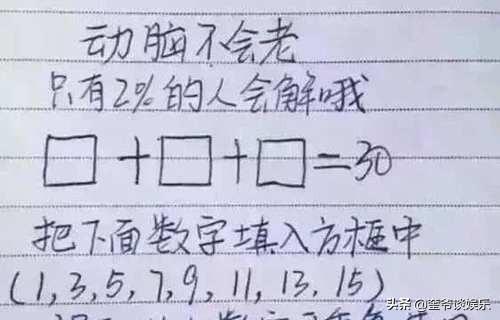 动脑不会老
只有2%的人会解哦
□+□+□=30
把下面数字填入方框中
(1,3,5,7,9,11,13,15)
头条 @奎爷谈娱乐